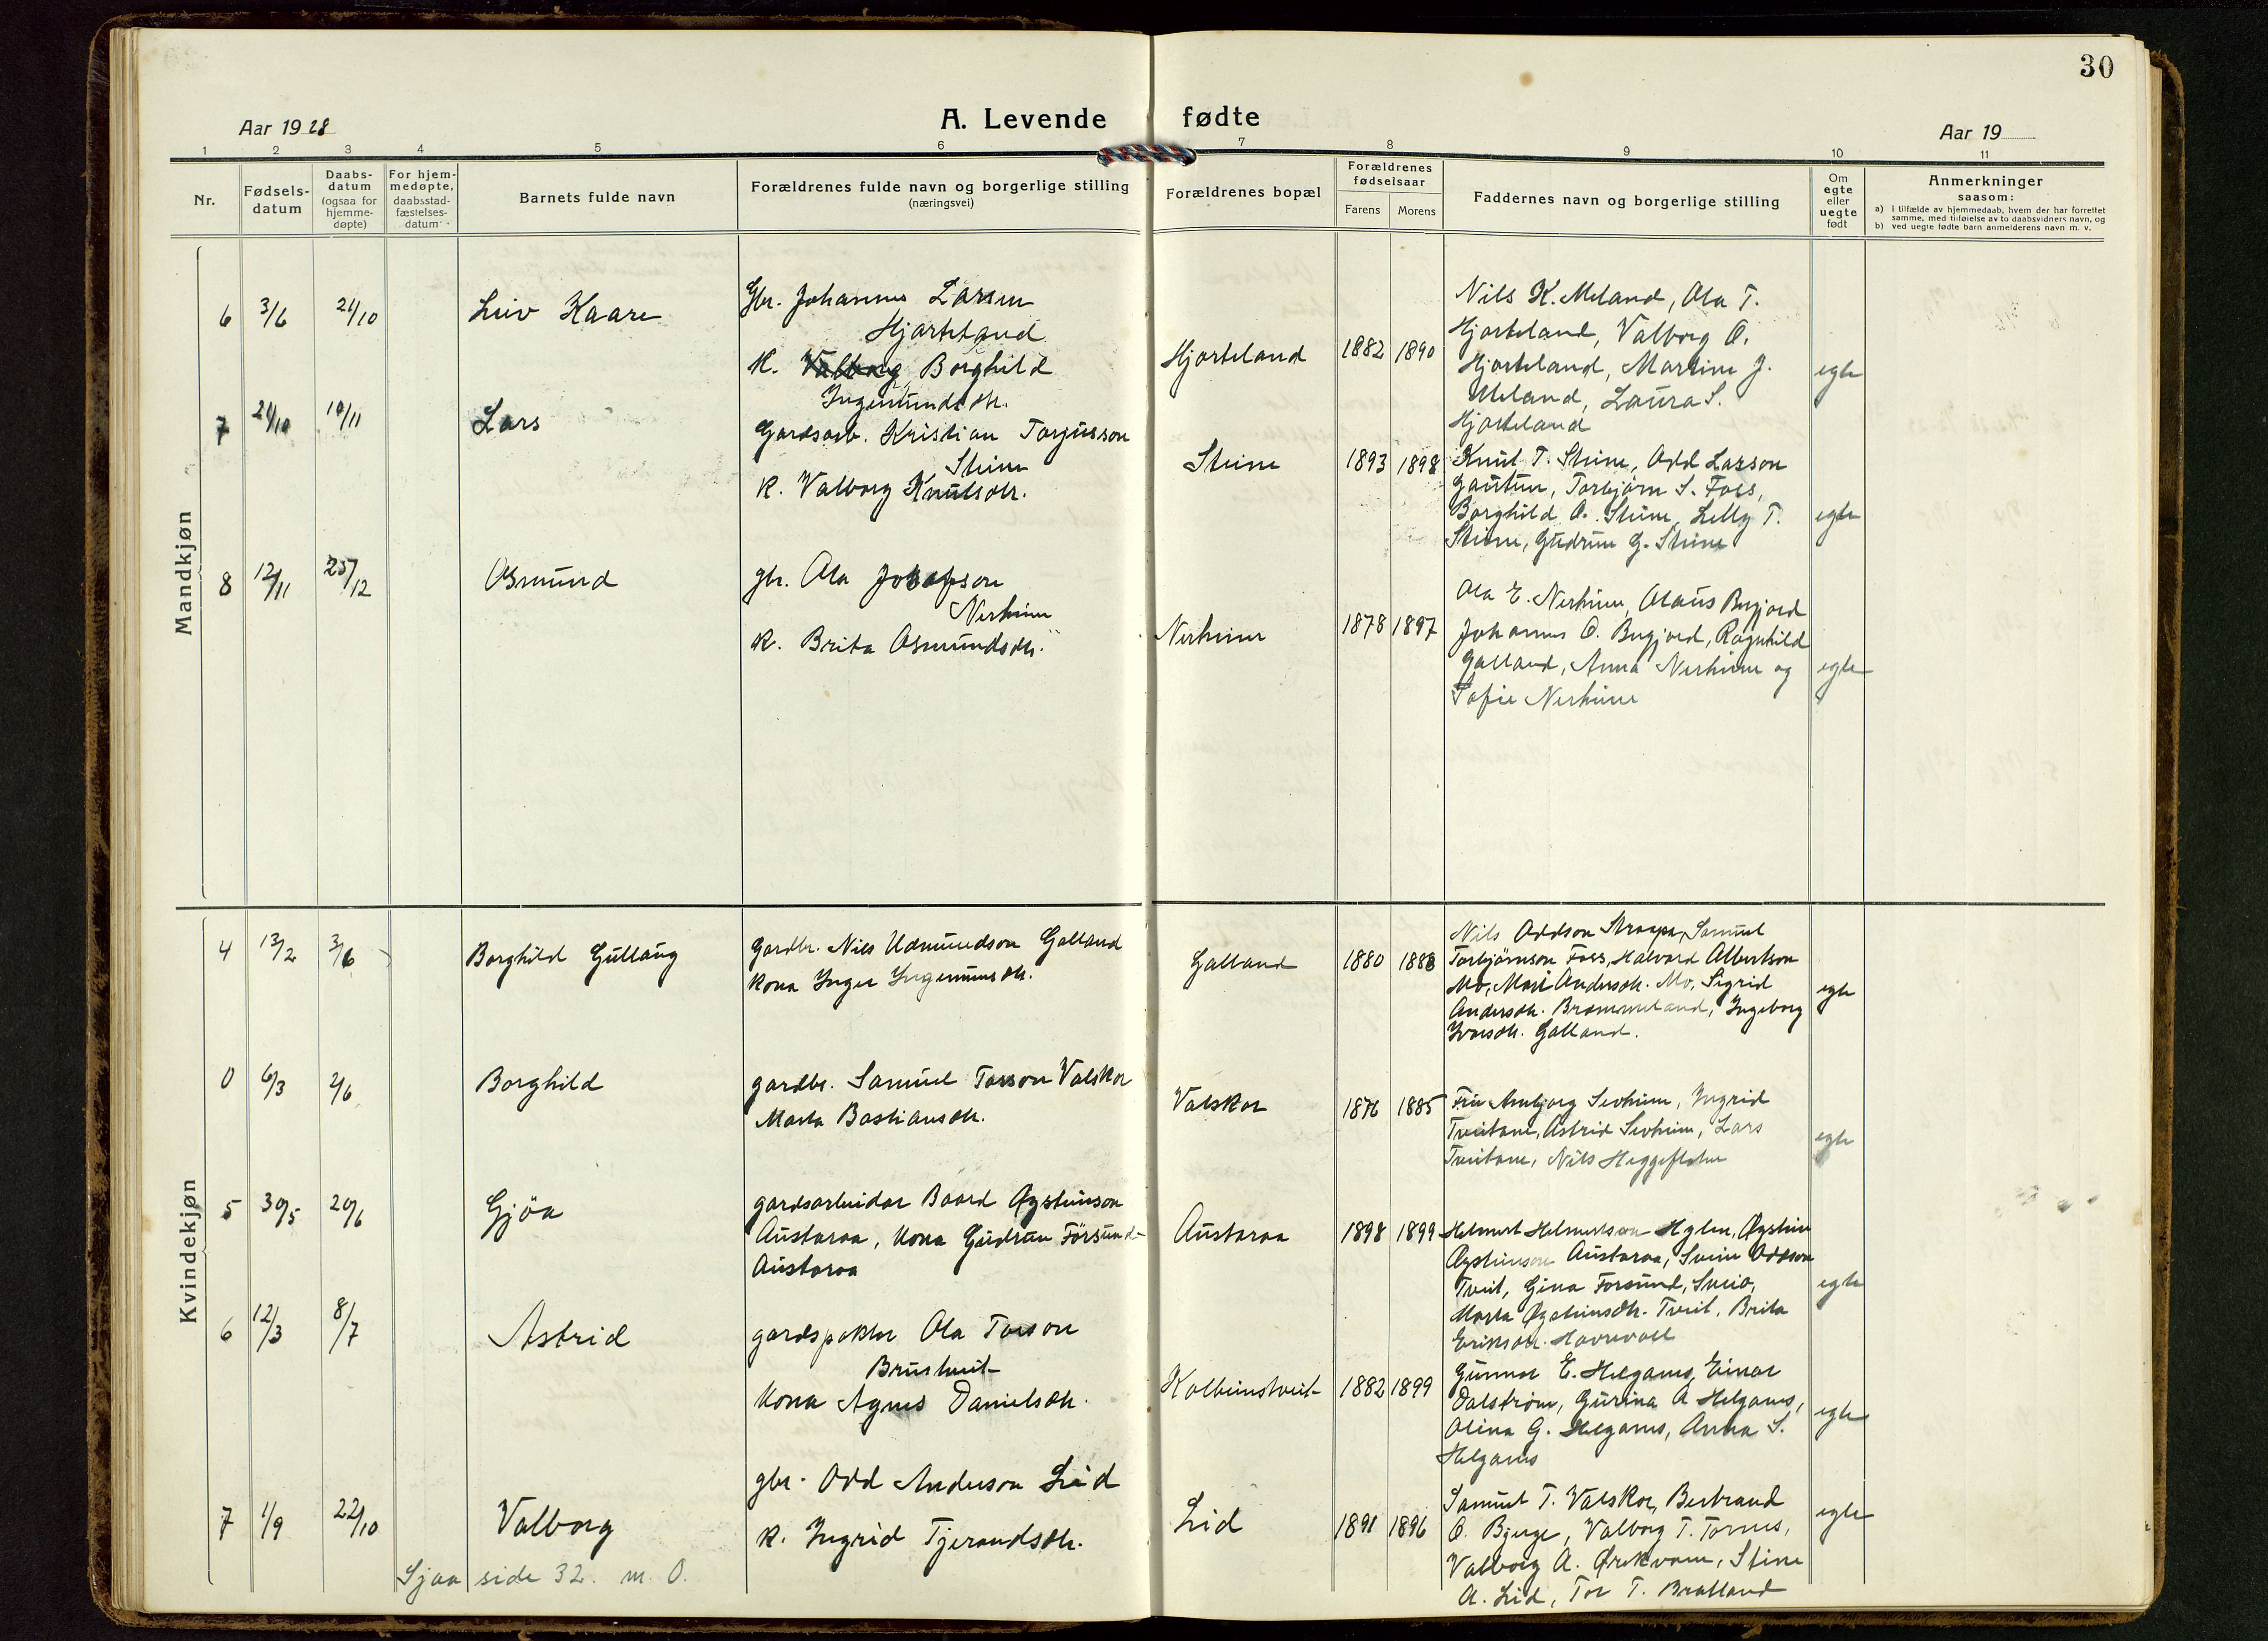 30
Aar 1928
A. Levende fødte
Aar 19
1 2 3 4 5 6 7 8 9 10 11
Nr.
Fødsels-
datum
Daabs-
datum
(ogsaa for
hjemme-
døpte)
For hjem-
medøpte,
daabsstad-
fæstelses-
datum
Barnets fulde navn
Forældrenes fulde navn og borgerlige stilling
(næringsvei)
Forældrenes bopæl
Forældrenes
fødselsaar
Farens Morens
Faddernes navn og borgerlige stilling
Om
egte
eller
uegte
født
Anmerkninger
saasom:
a) i tilfælde av hjemmedaab, hvem der har forrettet
samme, med tilføielse av to daabsvidners navn, og
b) ved uegte fødte barn anmelderens navn m. v.
Mandkjøn
6 3/6 21/10 Leiv Kaare
Gbr. Johannes Larsen
Hjorteland
K. Valborg Borghild
Ingemundsdtr.
Hjorteland 1882 1890
Nils K. Meland, Ola T.
Hjorteland, Valborg O.
Hjorteland, Martine J.
Meland, Laura S.
Hjorteland
egte
7 21/10 18/11 Lars
Gardsarb. Kristian Torjusson
Steine
K. Valborg Knutsdtr.
Steine 1893 1898
Knut T. Steine, Odd Larson
Gautun, Torbjørn S. Foss,
Borghild O. Steine, Lelly T.
Steine, Gudrun G. Steine
egte
8 12/11 25/12 Osmund
gbr. Ola Josefson
Nerheim
K. Brita Osmundsdtr.
Nerheim 1878 1897
Ola E. Nerheim, Olaus Bugjord
Johannes O. Bugjord, Ragnhild
Galland, Anna Nerheim og
Sofie Nerheim
egte
Kvindekjøn
4 13/2 3/6 Borghild Gullaug
Gardbr. Nils Udmundson Galland
Kona Inger Ingemunsdtr.
Galland 1880 1888
Nils Oddson Straapa, Samuel
Torbjørnson Foss, Halvard Albertson
Mo, Mari Andersdtr. Mo, Sigrid
Andersdtr. Brommeland, Ingeborg
Iversdtr. Galland.
egte
0 6/3 2/6 Borghild
gardbr. Samuel Torson Valskor
Marta Bastiansdtr.
Valskor 1876 1885
Fru Arnbjørg Sevheim, Ingrid
Tveitane, Astrid Sevheim, Lars
Tveitane, Nils
egte
5 30/5 20/6 Gjöa
gardsarbeidar Baard Øysteinson
Austaraa, Kona Gudrun Försund-
Austaraa
Austaraa 1898 1899
Helmert Helmertson Hylen, Øystein
Øysteinson Austaraa, Svein Oddson
Tveit, Gina Forsund, Sneio,
Marta Øysteinsdtr. Tveit, Brita
Eriksdtr. Havrevoll
egte
6 12/3 8/7 Astrid
gardspaktar Ola Torson
Brustveit
Kona Agnes Danielsdtr.
Kolbeinstveit 1882 1899
Gunnar E. Helganes, Einar
Dalstrøm, Gurina A Helganes,
Olina G. Helganes, Anna S.
Helganes
egte
7 1/9 22/10 Valborg
gbr. Odd Anderson Lid
K. Ingrid Tjerandsdtr.
Lid 1891 1896
Samuel T. Valskor, Bertrand
O. Bjerge, Valborg T. Tornes,
Valborg A. Ørekvam, Stine
A. Lid, Tor T. Bratland
egte
Sjaa side 32. m. 0.